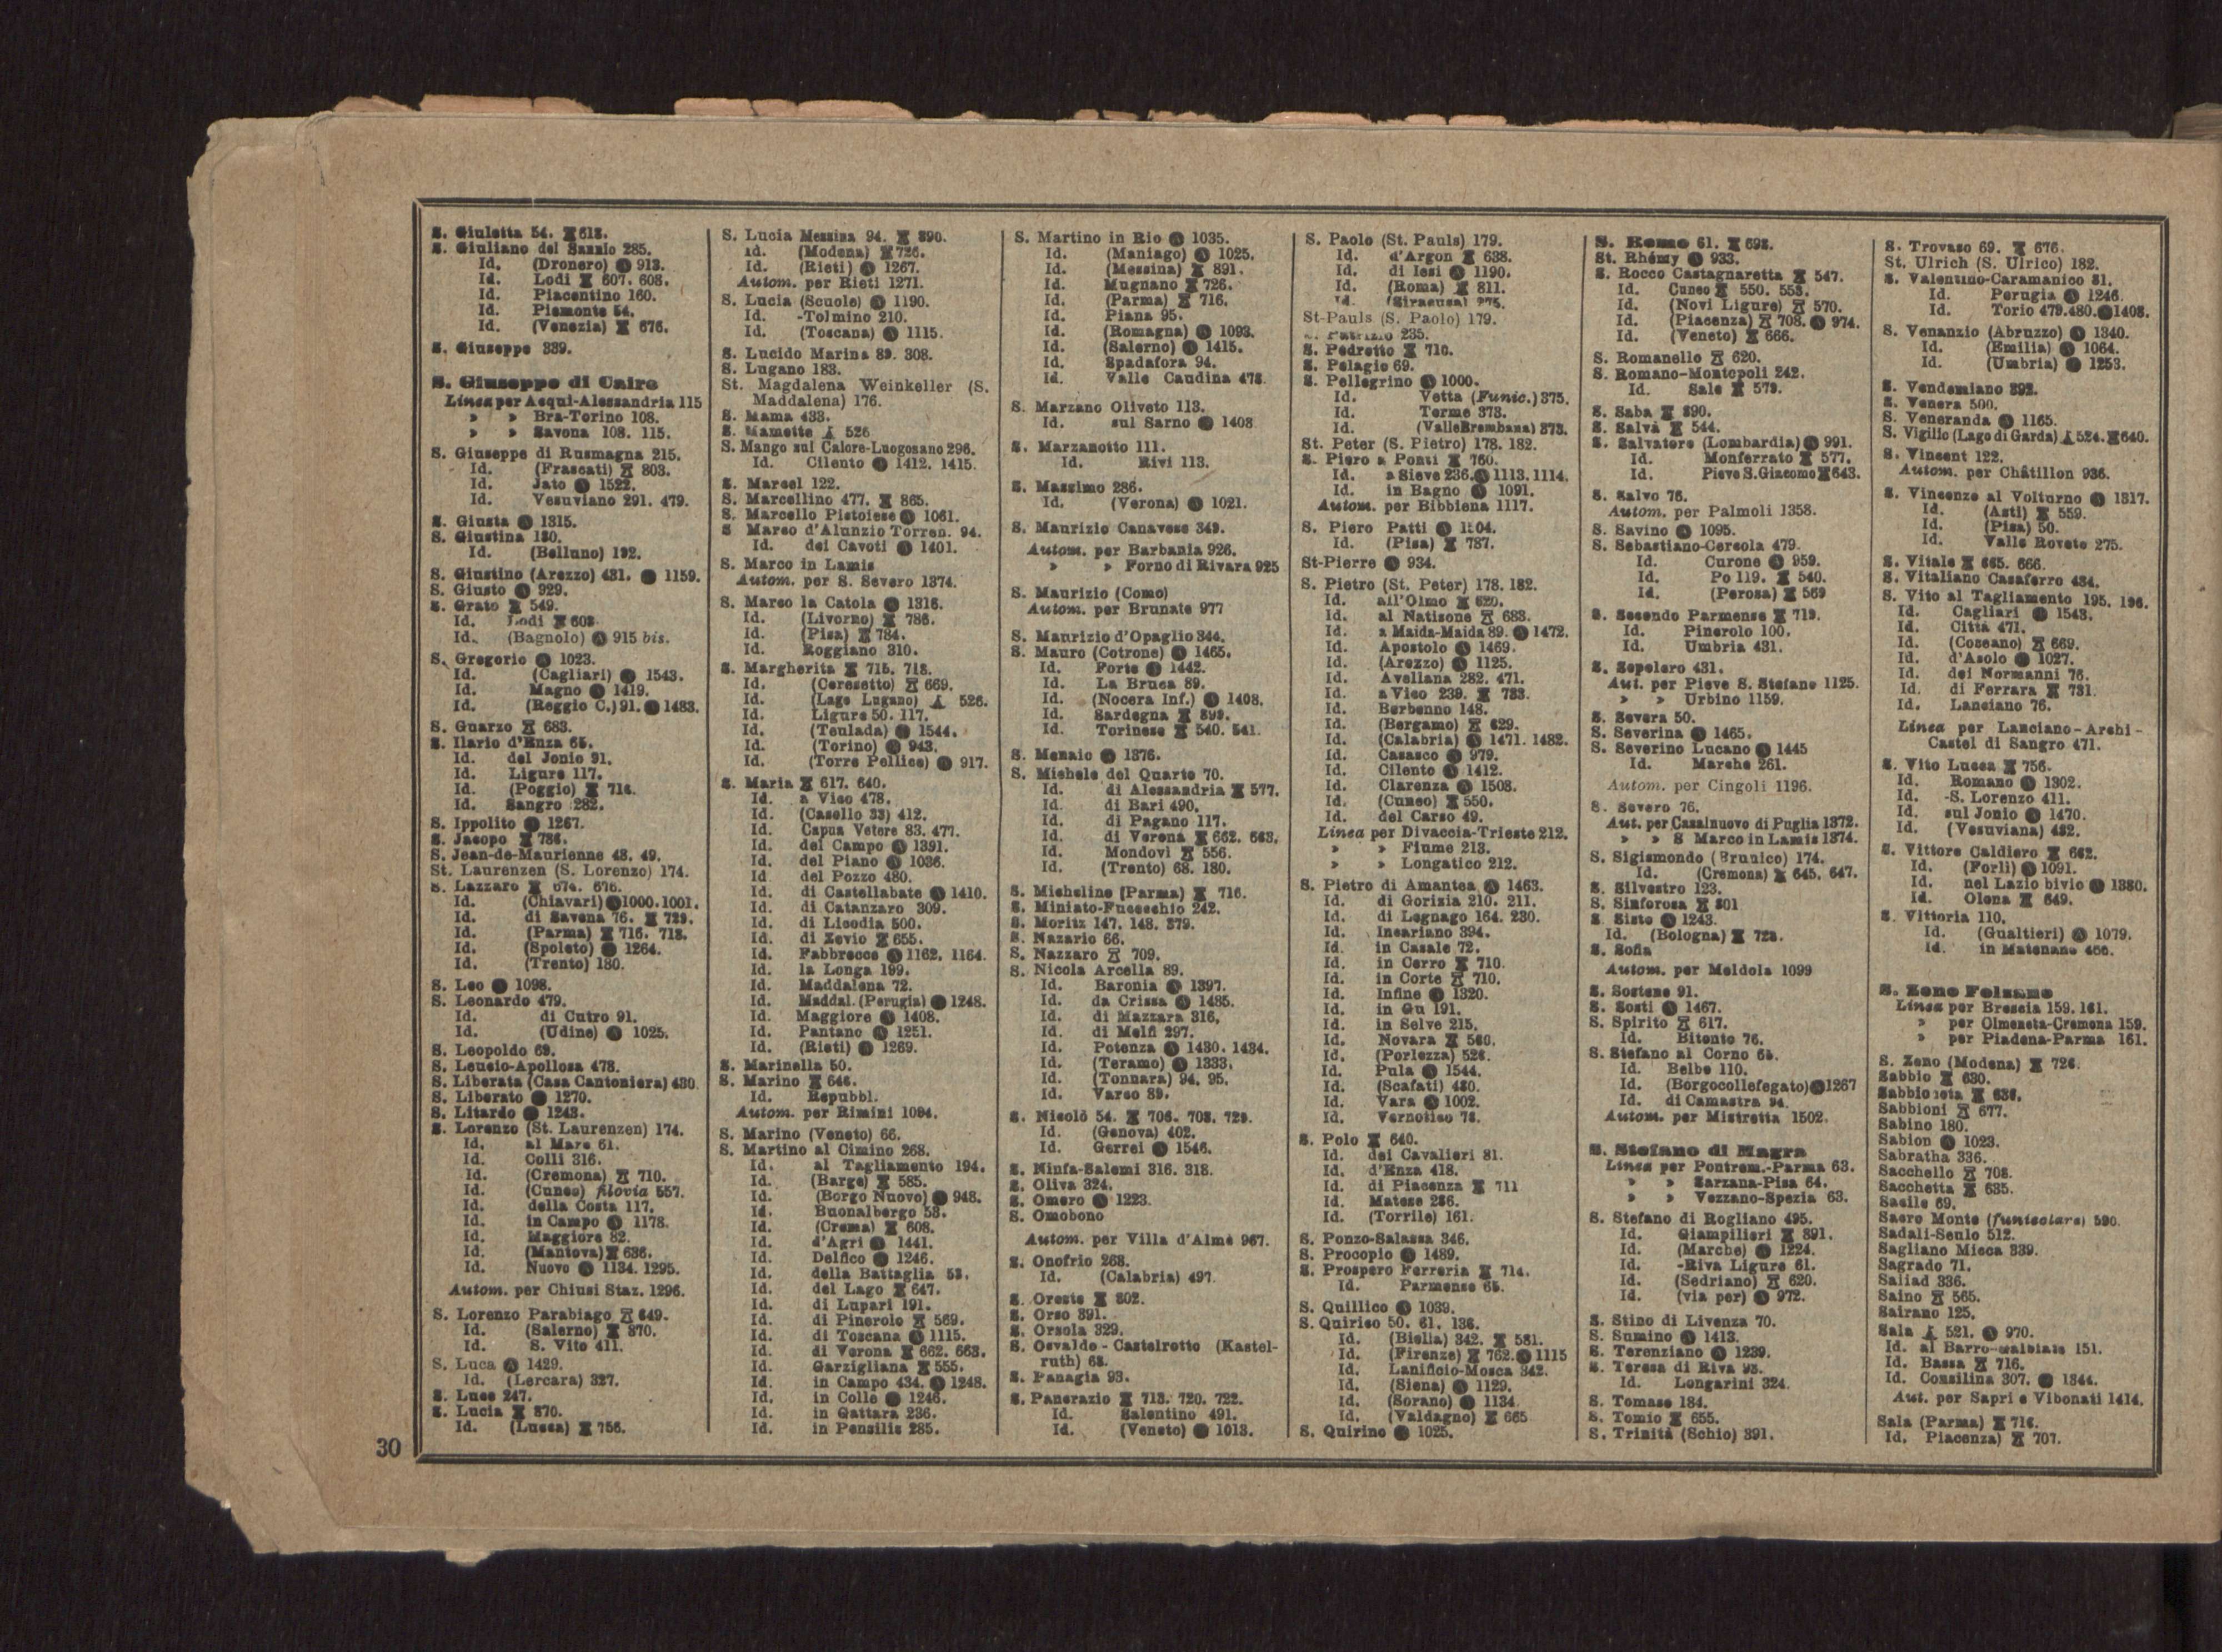 S. Giuletta 54. 618.
S. Giuliano del Sannio 285.
Id. (Dronero) 913.
Id. Lodi 607. 608.
Id. Piacentino 160.
Id. Piemonte 54.
Id. (Venezia) 676.
S. Giuseppe 339.
S. Giuseppe di Cairo
Linea per Acqui-Alessandria 115
» » Bra-Torino 108.
» » Savona 108. 115.
S. Giuseppe di Rusmagna 215.
Id. (Frascati) 803.
Id. Jato 1522.
Id. Vesuviano 291. 479.
S. Giusta 1315.
S. Giustina 180.
Id. (Belluno) 192.
S. Giustino (Arezzo) 431. 1159.
S. Giusto 929.
S. Grato 549.
Id. Lodi 608
Id. (Bagnolo) 915 bis.
S. Gregorio 1023.
Id. (Cagliari) 1543.
Id. Magno 1419.
Id. (Reggio C.) 91. 1483.
S. Guarzo 683.
S. Ilario d'Enza 65.
Id. del Jonio 91.
Id. Ligure 117.
Id. (Poggio) 714.
Id. Sangro 282.
S. Ippolito 1267.
S. Jacopo 786.
S. Jean-de-Maurienne 48. 49.
St. Laurenzen (S. Lorenzo) 174.
S. Lazzaro 674. 676.
Id. (Chiavari) 1000. 1001.
Id. di Savena 76. 729.
Id. (Parma) 716. 718.
Id. (Spoleto) 1264.
Id. (Trento) 180.
S. Leo 1098.
S. Leonardo 479.
Id. di Cutro 91.
Id. (Udine) 1025.
S. Leopoldo 69.
S. Leucio-Apollosa 478.
S. Liberata (Casa Cantoniera) 430
S. Liberato 1270.
S. Litardo 1243.
S. Lorenzo (St. Laurenzen) 174.
Id. al Mare 61.
Id. Colli 316.
Id. (Cremona) 710.
Id. (Cuneo) filovia 557.
Id. della Costa 117.
Id. in Campo 1178.
Id. Maggiore 82.
Id. (Mantova) 636.
Id. Nuovo 1134. 1295.
Autom. per Chiusi Staz. 1296.
S. Lorenzo Parabiago 649.
Id. (Salerno) 870.
Id. S. Vito 411.
S. Luca 1429.
Id. (Lercara) 327.
S. Luce 247.
S. Lucia 870.
Id. (Lucca) 756.
S. Lucia Messina 94. 890.
Id. (Modena) 726.
Id. (Rieti) 1267.
Autom. per Rieti 1271.
S. Lucia (Scuole) 1190.
Id. -Tolmino 210.
Id. (Toscana) 1115.
S. Lucido Marina 89. 308.
S. Lugano 183.
St. Magdalena Weinkeller (S.
Maddalena) 176.
S. Mama 433.
S. Mamette 526
S. Mango sul Calore-Luogosano 296.
Id. Cilento 1412. 1415.
S. Marcel 122.
S. Marcellino 477. 865.
S. Marcello Pistoiese 1061.
S Marco d'Alunzio Torren. 94.
Id. dei Cavoti 1401.
S. Marco in Lamis
Autom. per S. Severo 1374.
S. Marco la Catola 1316.
Id. (Livorno) 786.
Id. (Pisa) 784.
Id. Roggiano 310.
S. Margherita 715. 718.
Id. (Ceresetto) 669.
Id. (Lago Lugano) 526.
Id. Ligure 50. 117.
Id. (Teulada) 1544.
Id. (Torino) 943.
Id. (Torre Pellice) 917.
S. Maria 617. 640.
Id. a Vico 478.
Id. (Casello 33) 412.
Id. Capua Vetere 83. 477.
Id. del Campo 1391.
Id. del Piano 1036.
Id. del Pozzo 480.
Id. di Castellabate 1410.
Id. di Catanzaro 309.
Id. di Licodia 500.
Id. di Zevio 655.
Id. Fabbrecce 1162. 1164.
Id. la Longa 199.
Id. Maddalena 72.
Id. Maddal. (Perugia) 1248.
Id. Maggiore 1408.
Id. Pantano 1251.
Id. (Rieti) 1269.
S. Marinella 50.
S. Marino 646.
Id. Repubbl.
Autom. per Rimini 1094.
S. Marino (Veneto) 66.
S. Martino al Cimino 268.
Id. al Tagliamento 194.
Id. (Barge) 585.
Id. (Borgo Nuovo) 948.
Id. Buonalbergo 53.
Id. (Crema) 608.
Id. d'Agri 1441.
Id. Delfico 1246.
Id. della Battaglia 53.
Id. del Lago 647.
Id. di Lupari 191.
Id. di Pinerolo 569.
Id. di Toscana 1115.
Id. di Verona 662. 663.
Id. Garzigliana 555.
Id. in Campo 434. 1248.
Id. in Colle 1246.
Id. in Gattara 236.
Id. in Pensilis 285.
S. Martino in Rio 1035.
Id. (Maniago) 1025.
Id. (Messina) 891.
Id. Mugnano 726.
Id. (Parma) 716.
Id. Piana 95.
Id. (Romagna) 1093.
Id. (Salerno) 1415.
Id. Spadafora 94.
Id. Valle Caudina 478.
S. Marzano Oliveto 113.
Id. sul Sarno 1408
S. Marzanotto 111.
Id. Rivi 113.
S. Massimo 286.
Id. (Verona) 1021.
S. Maurizio Canavese 349.
Autom. per Barbania 926.
» » Forno di Rivara 925
S. Maurizio (Como)
Autom. per Brunate 977
S. Maurizio d'Opaglio 344.
S. Mauro (Cotrone) 1465.
Id. Forte 1442.
Id. La Bruca 89.
Id. (Nocera Inf.) 1408.
Id. Sardegna 899.
Id. Torinese 540. 541.
S. Menaio 1376.
S. Michele del Quarto 70.
Id. di Alessandria 577.
Id. di Bari 490.
Id. di Pagano 117.
Id. di Verona 662. 663.
Id. Mondovì 556.
Id. (Trento) 68. 180.
S. Micheline (Parma) 716.
S. Miniato-Fucecchio 242.
S. Moritz 147. 148. 379.
S. Nazario 66.
S. Nazzaro 709.
S. Nicola Arcella 89.
Id. Baronia 1397.
Id. da Crissa 1485.
Id. di Mazzara 316.
Id. di Melfi 297.
Id. Potenza 1430. 1434.
Id. (Teramo) 1333.
Id. (Tonnara) 94. 95.
Id. Varco 89.
S. Nicolò 54. 706. 708. 729.
Id. (Genova) 402.
Id. Gerrei 1546.
S. Ninfa-Salemi 316. 318.
S. Oliva 324.
S. Omero 1223.
S. Omobono
Autom. per Villa d'Almè 967.
S. Onofrio 268.
Id. (Calabria) 497.
S. Oreste 802.
S. Orso 391.
S. Orsola 329.
S. Osvaldo - Castelrotto (Kastel-
ruth) 68.
S. Panagia 93.
S. Pancrazio 713. 720. 722.
Id. Salentino 491.
Id. (Veneto) 1013.
S. Paolo (St. Pauls) 179.
Id. d'Argon 638.
Id. di Iesi 1190.
Id. (Roma) 811.
Id. (Siracusa) 275.
St-Pauls (S. Paolo) 179.
S. Patrizio 235.
S. Pedretto 710.
S. Pelagio 69.
S. Pellegrino 1000.
Id. Vetta (Funic.) 375.
Id. Terme 373.
Id. (Valle Brembana) 373.
St. Peter (S. Pietro) 178. 182.
S. Piero a Ponti 760.
Id. a Sieve 236. 1113. 1114.
Id. in Bagno 1091.
Autom. per Bibbiena 1117.
S. Piero Patti 1504.
Id. (Pisa) 787.
St-Pierre 934.
S. Pietro (St. Peter) 178. 182.
Id. all'Olmo 620.
Id. al Natisone 683.
Id. a Maida-Maida 89. 1472.
Id. Apostolo 1469.
Id. (Arezzo) 1125.
Id. Avellana 282. 471.
Id. a Vico 239. 783.
Id. Berbenno 148.
Id. (Bergamo) 629.
Id. (Calabria) 1471. 1482.
Id. Casasco 979.
Id. Cilento 1412.
Id. Clarenza 1508.
Id. (Cuneo) 550.
Id. del Carso 49.
Linea per Divaccia-Trieste 212.
» » Fiume 213.
» » Longatico 212.
S. Pietro di Amantea 1463.
Id. di Gorizia 210. 211.
Id. di Legnago 164. 230.
Id. Incariano 394.
Id. in Casale 72.
Id. in Cerro 710.
Id. in Corte 710.
Id. Infine 1320.
Id. in Gu 191.
Id. in Selve 215.
Id. Novara 560.
Id. (Porlezza) 526.
Id. Pula 1544.
Id. (Scafati) 480.
Id. Vara 1002.
Id. Vernotico 78.
S. Polo 640.
Id. dei Cavalieri 81.
Id. d'Enza 418.
Id. di Piacenza 711
Id. Matese 286.
Id. (Torrile) 161.
S. Ponzo-Salassa 346.
S. Procopio 1489.
S. Prospero Ferreria 714.
Id. Parmense 65.
S. Quilico 1039.
S. Quirico 50. 61. 136.
Id. (Biella) 342. 581.
Id. (Firenze) 762. 1115
Id. Lanificio-Mosca 342.
Id. (Siena) 1129.
Id. (Sorano) 1134
Id. (Valdagno) 665
S. Quirino 1025.
S. Remo 61. 693.
St. Rhémy 933.
S. Rocco Castagnaretta 547.
Id. Cuneo 550. 553.
Id. (Novi Ligure) 570.
Id. (Piacenza) 708. 974.
Id. (Veneto) 666.
S. Romanello 620.
S. Romano-Montopoli 242.
Id. Sale 579.
S. Saba 890.
S. Salvà 544.
S. Salvatore (Lombardia) 991.
Id. Monferrato 577.
Id. Pieve S. Giacomo 643.
S. Salvo 76.
Autom. per Palmoli 1358.
S. Savino 1095.
S. Sebastiano-Cercola 479.
Id. Curone 959.
Id. Po 119. 540.
Id. (Perosa) 569
S. Secondo Parmense 719.
Id. Pinerolo 100.
Id. Umbria 431.
S. Sepolcro 431.
Aut. per Pieve S. Stefano 1125.
» » Urbino 1159.
S. Severa 50.
S. Severina 1465.
S. Severino Lucano 1445
Id. Marche 261.
Autom. per Cingoli 1196.
S. Severo 76.
Aut. per Casalnuovo di Puglia 1372.
» » S Marco in Lamis 1374.
S. Sigismondo (Brunico) 174.
Id. (Cremona) 645. 647.
S. Silvestro 123.
S. Sinforosa 801
S. Sisto 1243.
Id. (Bologna) 728.
S. Sofia
Autom. per Meldola 1099
S. Sostene 91.
S. Sosti 1467.
S. Spirito 617.
Id. Bitonto 76.
S. Stefano al Corno 65.
Id. Belbo 110.
Id. (Borgocollefegato) 1267
Id. di Camastra 94.
Autom. per Mistretta 1502.
S. Stefano di Magra
Linea per Pontrem.-Parma 63.
» » Sarzana-Pisa 64.
» » Vezzano-Spezia 63.
S. Stefano di Rogliano 495.
Id. Giampilieri 891.
Id. (Marche) 1224.
Id. -Riva Ligure 61.
Id. (Sedriano) 620.
Id. (via per) 972.
S. Stino di Livenza 70.
S. Sumino 1413.
S. Terenziano 1239.
S. Teresa di Riva 93.
Id. Longarini 324.
S. Tomaso 184.
S. Tomio 655.
S. Trinità (Schio) 391.
S. Trovaso 69. 676.
St. Ulrich (S. Ulrico) 182.
S. Valentino-Caramanico 81.
Id. Perugia 1246.
Id. Torio 479. 480. 1408.
S. Venanzio (Abruzzo) 1340.
Id. (Emilia) 1064.
Id. (Umbria) 1253.
S. Vendemiano 392.
S. Venera 500.
S. Veneranda 1165.
S. Vigilio (Lago di Garda) 524. 640.
S. Vincent 122.
Autom. per Châtillon 936.
S. Vincenzo al Volturno 1317.
Id. (Asti) 559.
Id. (Pisa) 50.
Id. Valle Roveto 275.
S. Vitale 665. 666.
S. Vitaliano Casaferro 484.
S. Vito al Tagliamento 195. 196.
Id. Cagliari 1543.
Id. Città 471.
Id. (Coseano) 669.
Id. d'Asolo 1027.
Id. dei Normanni 76.
Id. di Ferrara 731.
Id. Lanciano 76.
Linea per Lanciano - Archi -
Castel di Sangro 471.
S. Vito Lucca 756.
Id. Romano 1302.
Id. -S. Lorenzo 411.
Id. sul Jonio 1470.
Id. (Vesuviana) 482.
S. Vittore Caldiero 662.
Id. (Forlì) 1091.
Id. nel Lazio bivio 1380.
Id. Olona 649.
S. Vittoria 110.
Id. (Gualtieri) 1079.
Id. in Matenano 466.
S. Zeno Folzano
Linea per Brescia 159. 161.
» per Olmeneta-Cremona 159.
» per Piadena-Parma 161.
S. Zeno (Modena) 726.
Sabbio 630.
Sabbioneta 636.
Sabbioni 677.
Sabino 180.
Sabion 1023.
Sabratha 336.
Sacchello 708.
Sacchetta 635.
Sacile 69.
Sacro Monte (funicolare) 590.
Sadali-Seulo 512.
Sagliano Micca 339.
Sagrado 71.
Saliad 336.
Saino 565.
Sairano 125.
Sala 521. 970.
Id. al Barro-Galbiate 151.
Id. Bassa 716.
Id. Consilina 307. 1344.
Aut. per Sapri e Vibonati 1414.
Sala (Parma) 716.
Id. Piacenza) 707.
30